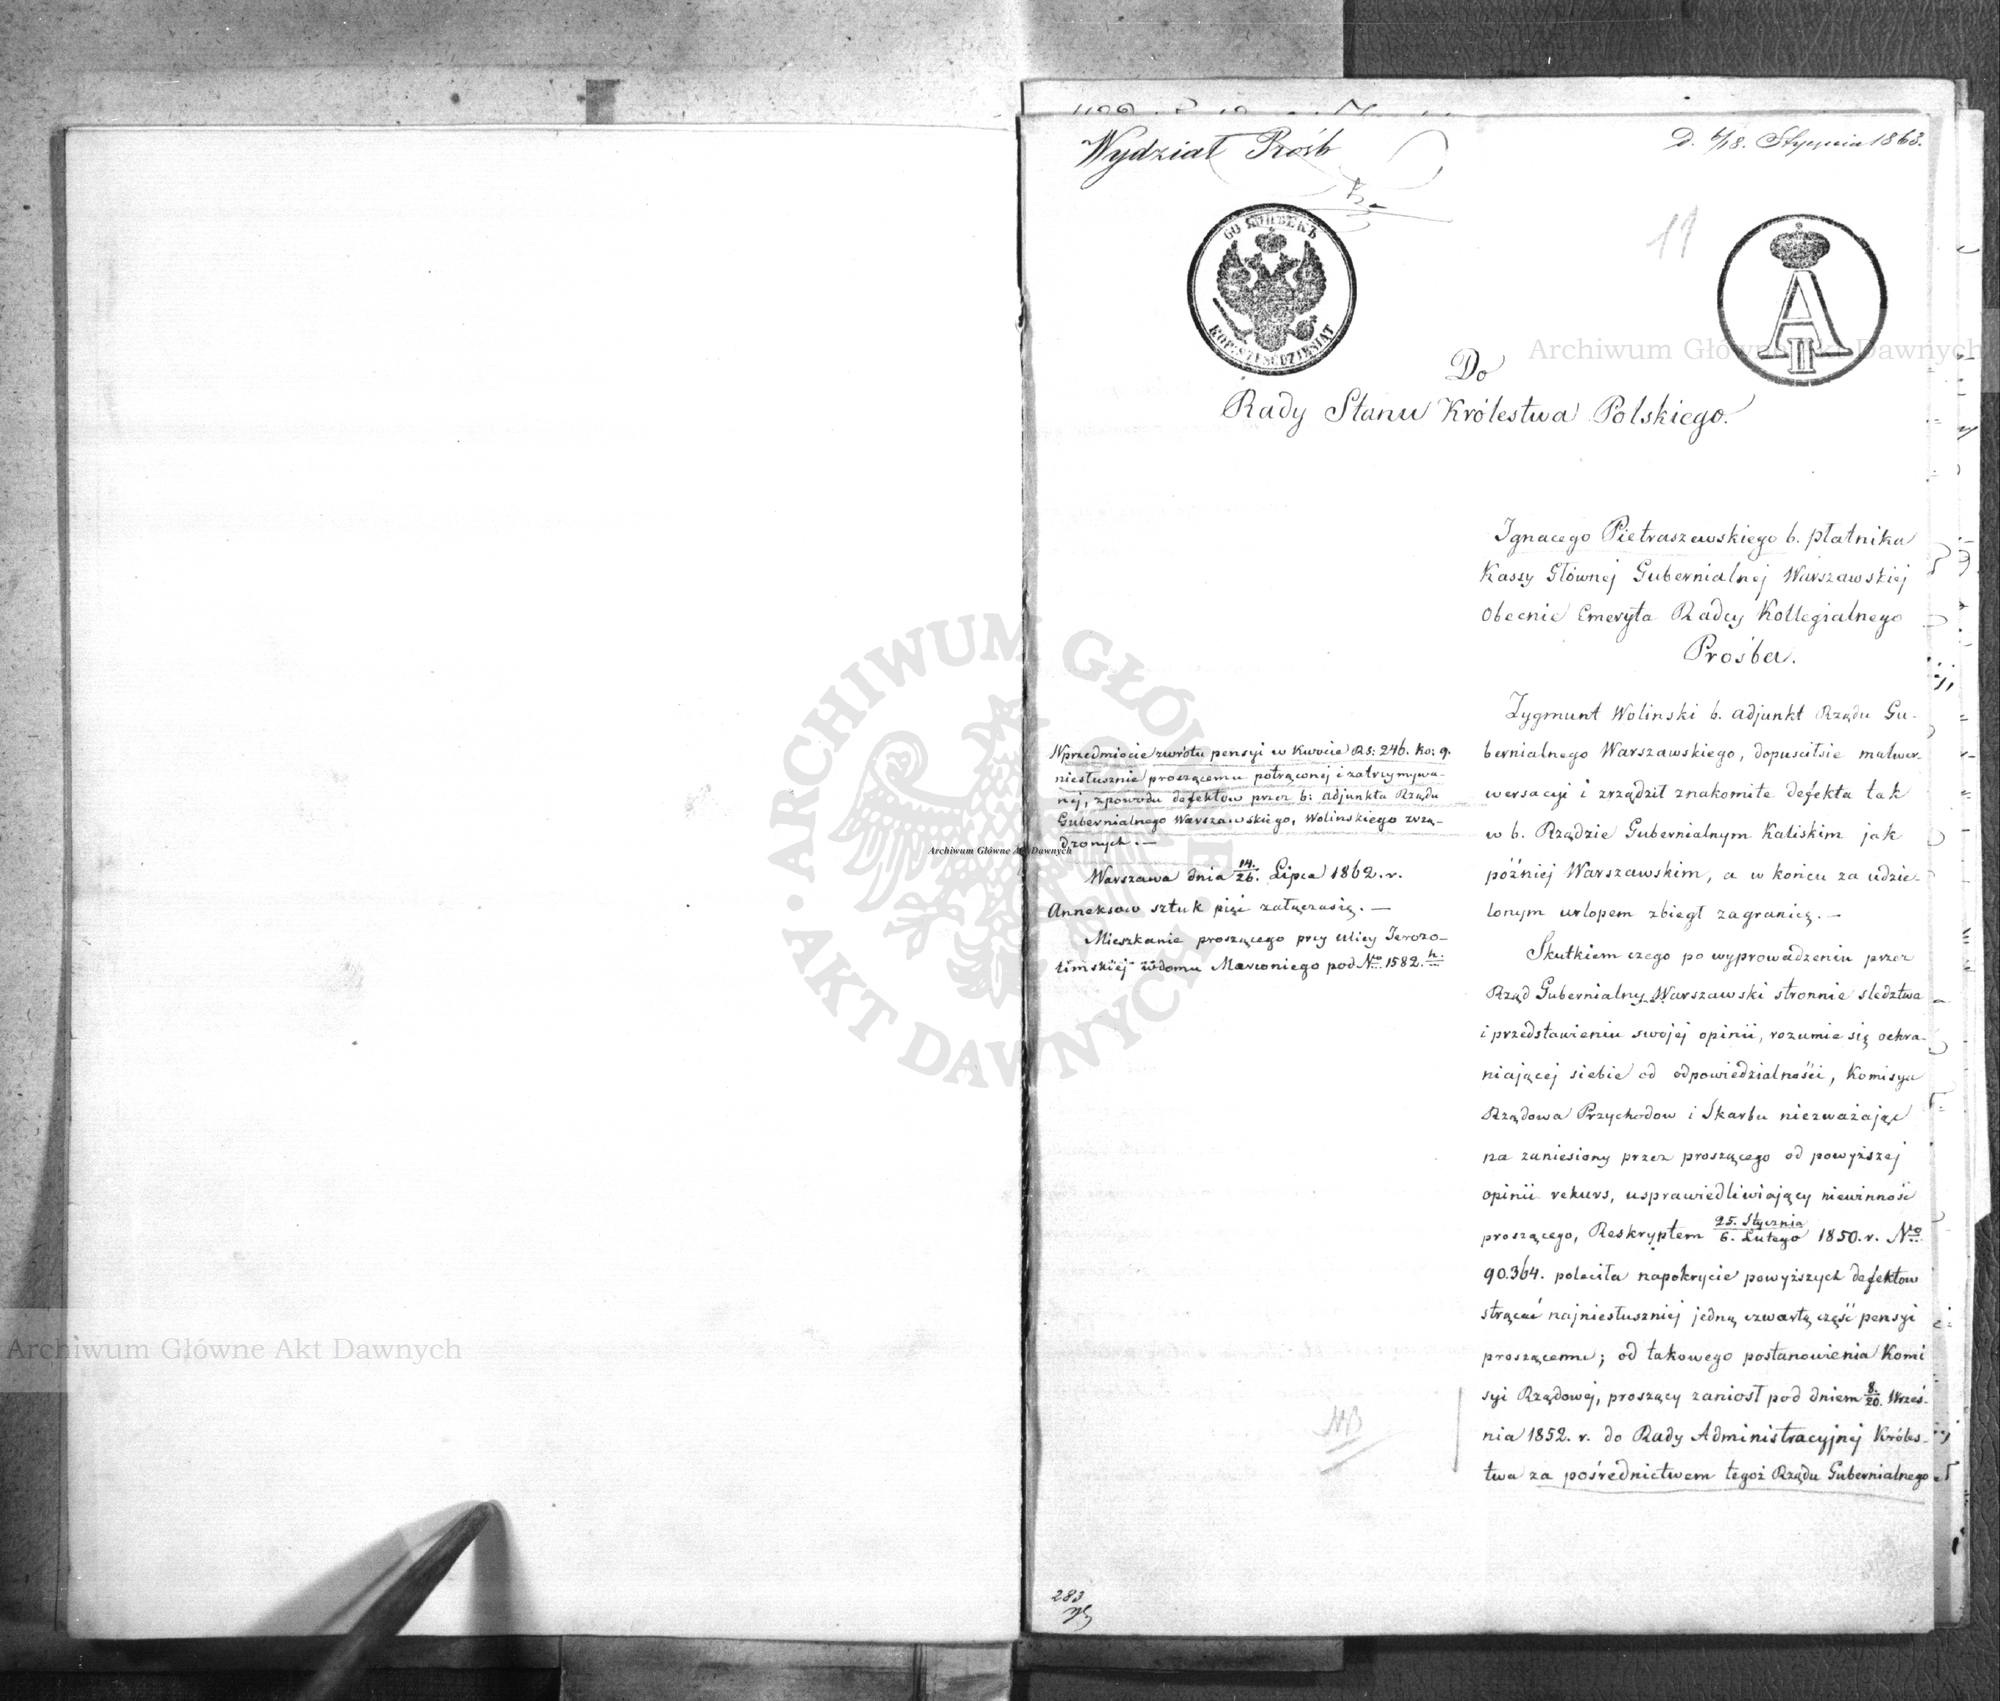 Wydział Próśb
D. 6/18. Stycznia 1863.
11
60 КОПѢЕКЪ
KOP: SZEŚĆDZIESIĄT
A
II
Do
Rady Stanu Królestwa Polskiego.
Ignacego Pietraszewskiego b. płatnika
Kassy Głównej Gubernialnej Warszawskiej
Obecnie Emeryta Radcy Kollegialnego
Prośba.
Wprzedmiocie zwrotu pensyi w kwocie Rs: 246. ko: 9.
niesłusznie proszącemu potrąconej i zatrzymywa-
nej, zpowodu defektow przez b: adjunkta Rządu
Gubernialnego Warszawskiego, Wolinskiego zrzą-
dzonych. —
Warszawa dnia 14./26. Lipca 1862. r.
Anneksow sztuk pięć załączasię. —
Mieszkanie proszącego przy ulicy Jerozo-
limskiej wdomu Marconiego pod No. 1582. h.
Zygmunt Wolinski b. adjunkt Rządu Gu-
bernialnego Warszawskiego, dopuściłsie malwer-
wersacyi i zrządził znakomite defekta tak
w b. Rządzie Gubernialnym Kaliskim jak
później Warszawskim, a w końcu za udzie-
lonym urlopem zbiegł zagranicę. —
Skutkiem czego po wyprowadzeniu przez
Rząd Gubernialny Warszawski stronnie sledztwa
i przedstawieniu swojej opinii, rozumie się ochra-
niającej siebie od odpowiedzialności, Komisya
Rządowa Przychodow i Skarbu niezważając
na zaniesiony przez proszącego od powyższej
opinii rekurs, usprawiedliwiający niewinność
proszącego, Reskryptem 25. Stycznia/6. Lutego 1850. r. No
90.364. poleciła napokrycie powyższych defektow
strącać najniesłuszniej jedną czwartą część pensyi
proszącemu; od takowego postanowienia Komi
syi Rządowej, proszący zaniosł pod dniem 8./20. Wrześ-
nia 1852. r. do Rady Administracyjnej Króles-
twa za pośrednictwem tegoż Rządu Gubernialnego
NB
283
Archiwum Główne Akt Dawnych
Archiwum Główne Akt Dawnych
Archiwum Główne Akt Dawnych
ARCHIWUM GŁÓWNE AKT DAWNYCH